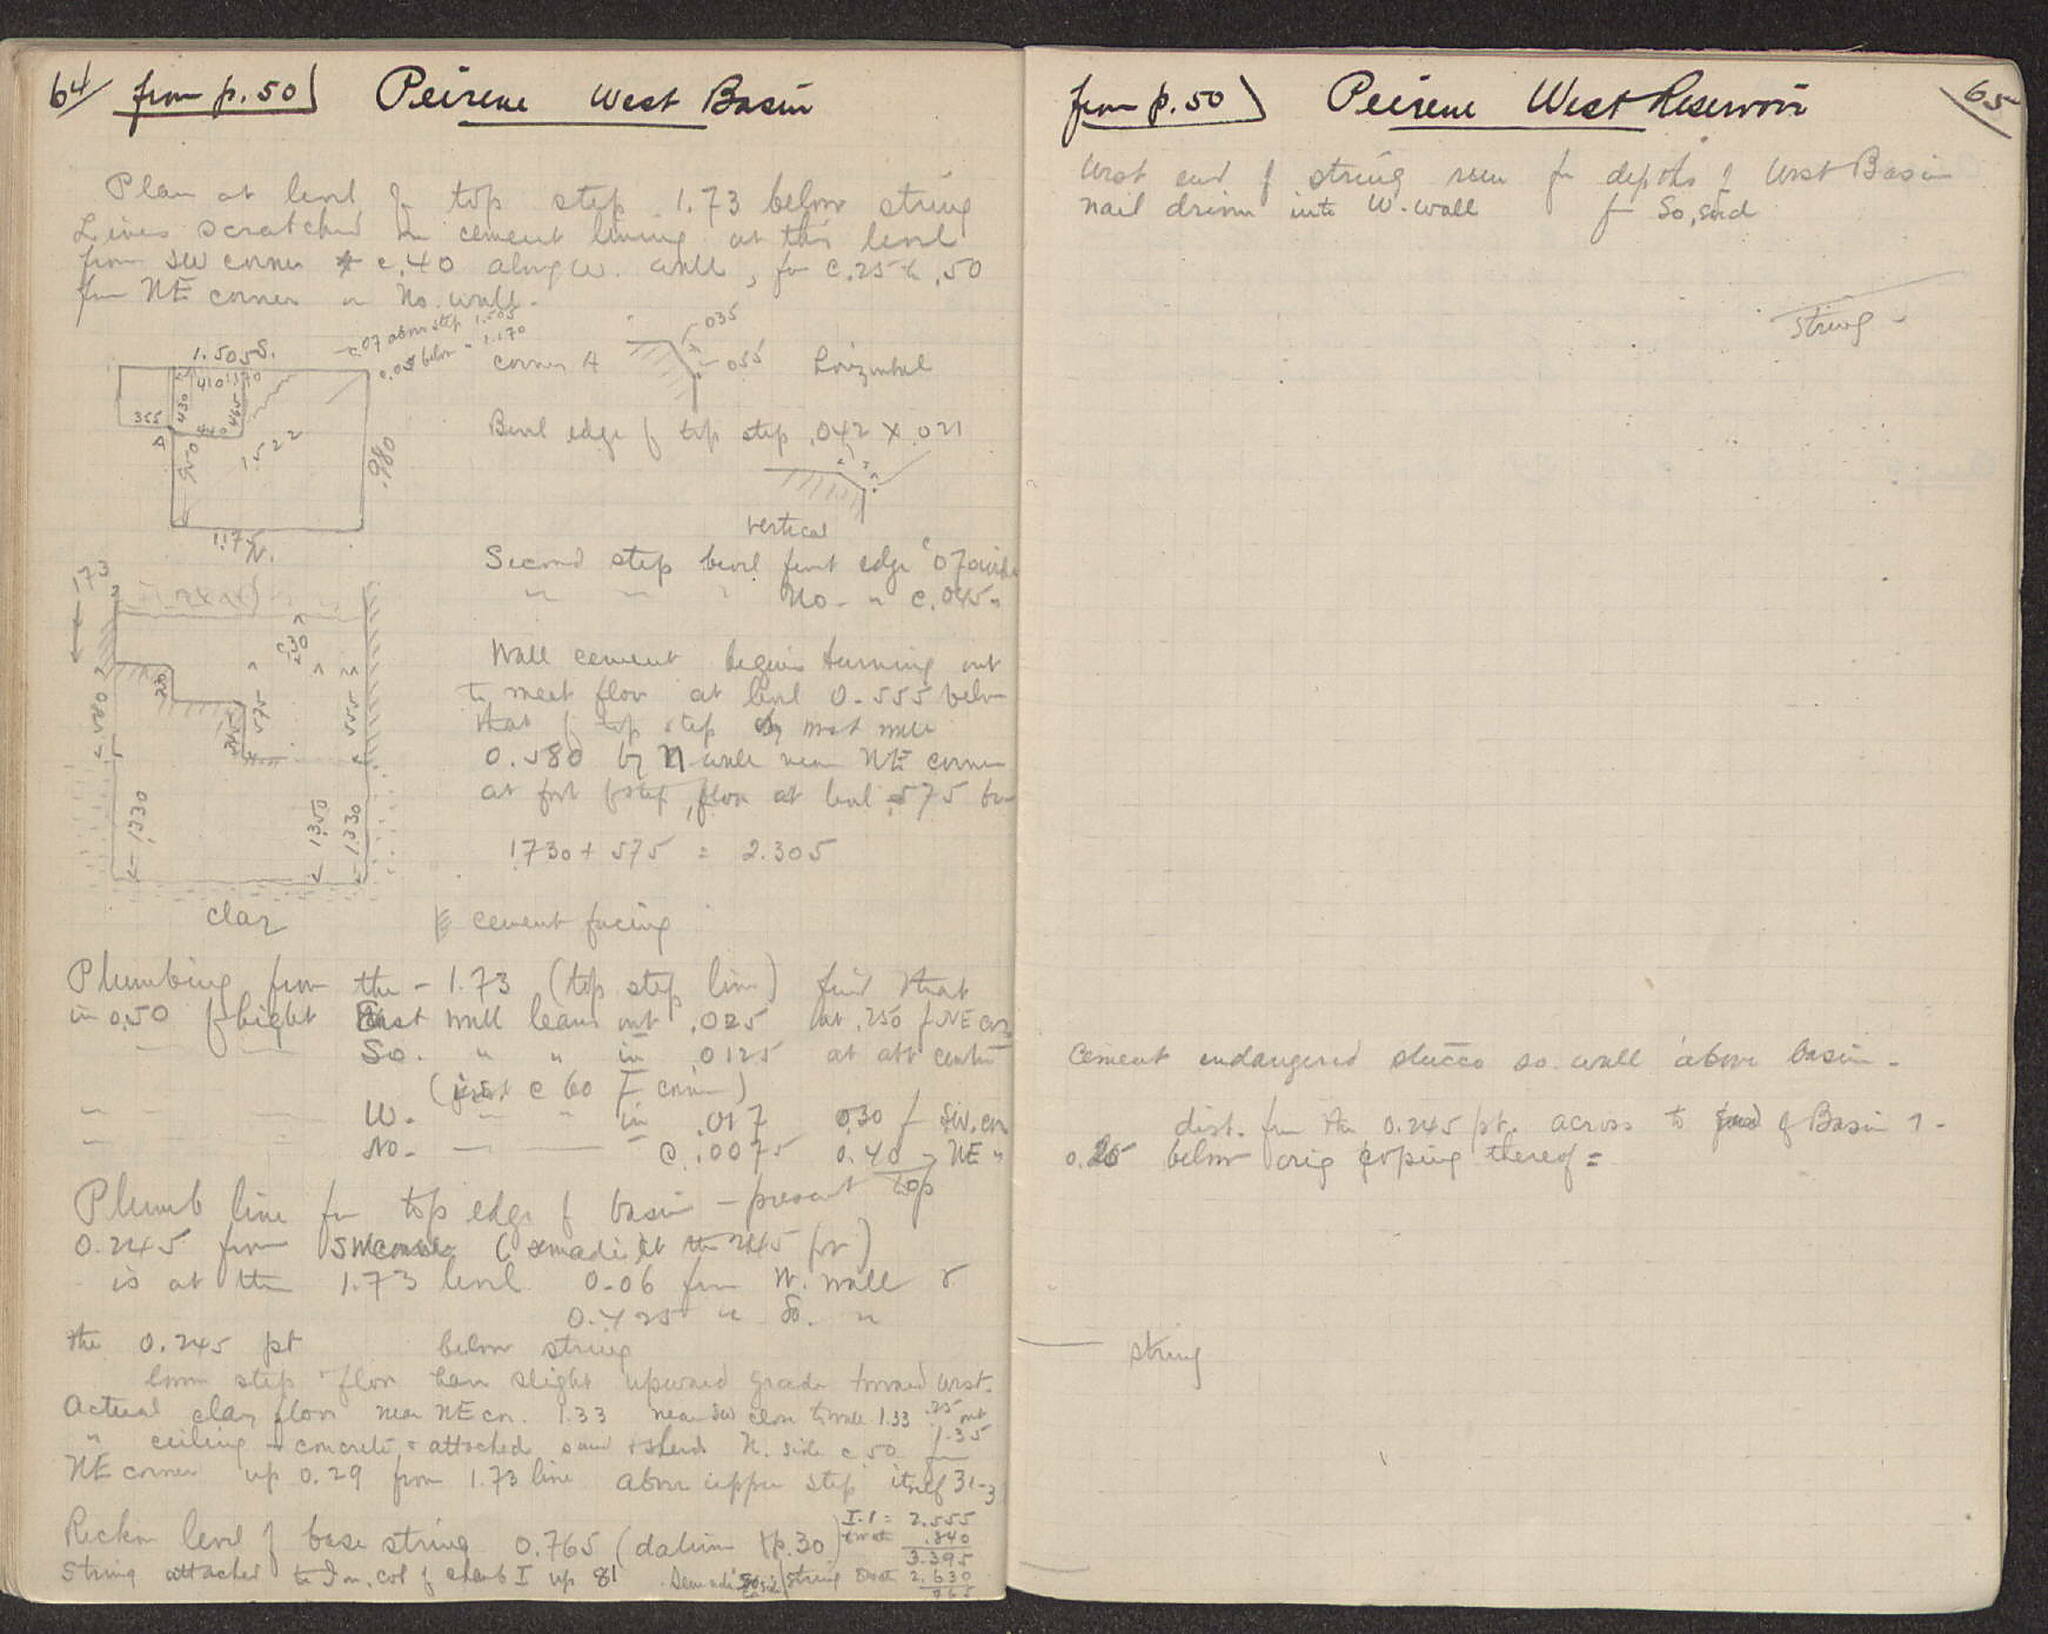 64/ from p. 50) Peirene West Basin
Plan at level of top step 1.73 below string
Lines scratched in cement lining at this level
from SW corner c. .40 along W. wall, for c. 25 .50
from NE corner on No. wall.
c .07 above step 1.505
c .05 below " 1.170
1.505 S.
410
430
465
440
355
A
950
1.522
.980
1.175
N.
corner A
.035
.055
horizontal
Bevel edge of top step .042 X .021
vertical
Second step bevel front edge c 07 wide
" " " No. " c .045 "
1.73
c .30
.580
.575
.555
1.330
1.350
1.330
clay
Wall cement begins turning out
to meet floor at level 0.555 below
that of top step by most wall
0.580 by N wall near NE corner
at foot of step, floor at level .575 be
1.730 + 575 = 2.305
cement facing
Plumbing from the - 1.73 (top step line) find that
in 0.50 of hight East wall leans out .025 at .250 f NE cor.
So. " " in .0125 at att centre
( c 60 f corner)
W. " " in .017 0.30 f SW. cor
No. c .0075 0.40 " NE "
Plumb line from top edge of basin - present top
0.245 from SW corner ( made at the 245 pt)
is at the 1.73 level 0.06 from W. wall &
0.425 " So. "
the 0.245 pt below string
lower step & floor have slight upward grade toward west.
Actual clay floor near NE cor. 1.33 near SW close to wall 1.33 .25 out
1.35
" ceiling - concrete & attached sand & sherds N. side c 50 from
NE corner up 0.29 from 1.73 line above upper step itself 31-3
Reckon level of base string 0.765 (datum p. 30)
I.1 = 2.555
.840
3.395
String attached to I m. col of chamb I up 81
string 2.630
.765
from p. 50) Peirene West Reservoir 65
West end of string run for depths of West Basin
nail driven into W. wall f So, end
string -
Cement endangered stucco so. wall above basin -
dist. from the 0.245 pt. across to of Basin 1 -
0.25 below orig coping thereof =
string